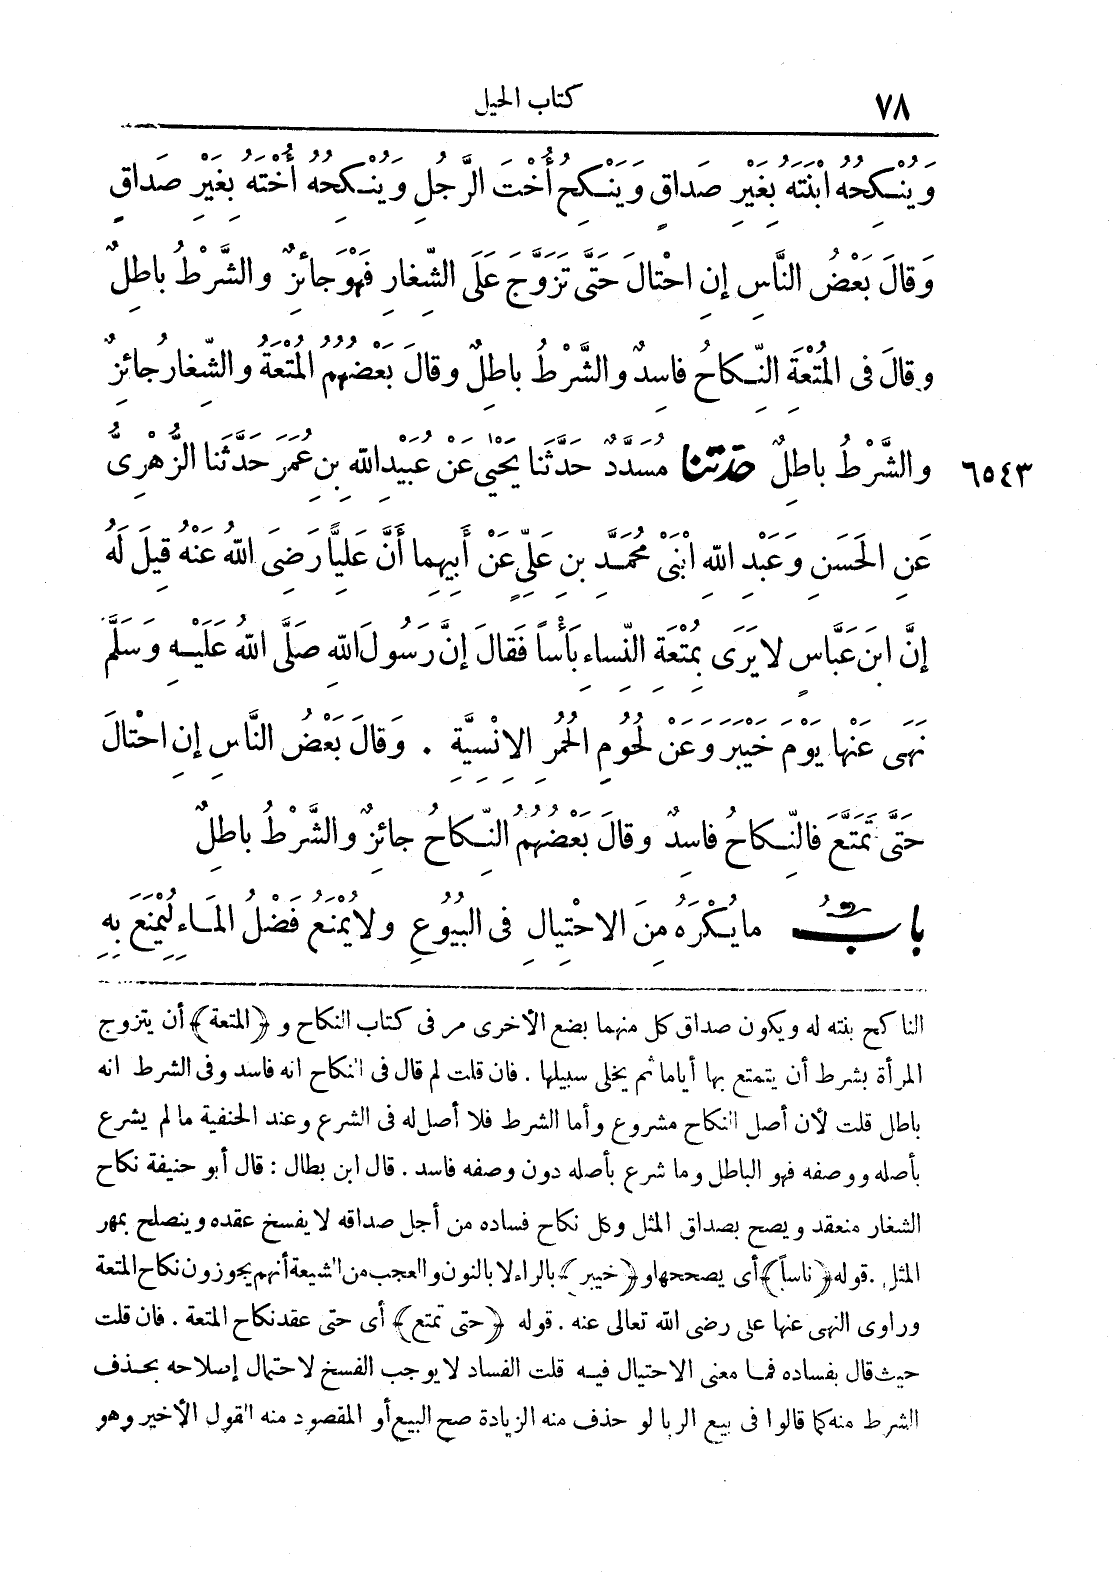 ٧٨ كتاب الحيل
وَيُنْكِحُهُ ابْنَتَهُ بِغَيْرِ صَدَاقٍ وَيَنْكِحُ أُخْتَ الرَّجُلِ وَيُنْكِحُهُ أُخْتَهُ بِغَيْرِ صَدَاقٍ
وَقَالَ بَعْضُ النَّاسِ إِنِ احْتَالَ حَتَّى تَزَوَّجَ عَلَى الشِّغَارِ فَهْوَ جَائِزٌ وَالشَّرْطُ بَاطِلٌ
وقَالَ فى الْمُتْعَةِ النِّكاحُ فاسِدٌ والشَّرْطُ باطِلٌ وقالَ بَعْضُهُمُ الْمُتْعَةُ والشِّغارُ جائِزٌ
والشَّرْطُ باطِلٌ حَدَّثَنَا مُسَدَّدٌ حَدَّثَنا يَحْيَى عَنْ عُبَيْدِ اللهِ بنِ عُمَرَ حَدَّثَنا الزُّهْرِىُّ ٦٥٤٣
عَنِ الحَسَنِ وَعَبْدِ اللهِ ابْنَىْ مُحَمَّدِ بنِ عَلِىٍّ عَنْ أَبِيهِما أَنَّ عَلِيًّا رَضِىَ اللهُ عَنْهُ قِيلَ لَهُ
إِنَّ ابنَ عَبَّاسٍ لا يَرَى بِمُتْعَةِ النِّساءِ بَأْساً فَقالَ إنَّ رَسُولَ اللهِ صَلَّى اللهُ عَلَيْهِ وَسَلَّمَ
نَهَى عَنْها يَوْمَ خَيْبَرَ وَعَنْ لُحُومِ الحُمُرِ الإِنْسِيَّةِ . وَقالَ بَعْضُ النَّاسِ إِنِ احْتالَ
حَتَّى تَمَتَّعَ فالنِّكاحُ فاسِدٌ وقالَ بَعْضُهُمُ النِّكاحُ جائِزٌ والشَّرْطُ باطِلٌ
بابُ ما يُكْرَهُ مِنَ الاحْتِيالِ فى البُيُوعِ ولا يُمْنَعُ فَضْلُ المَاءِ لِيُمْنَعَ بِهِ
الناكح بنته له ويكون صداق كل منهما بضع الأخرى مر فى كتاب النكاح و ﴿المتعة﴾ أن يتزوج
المرأة بشرط أن يتمتع بها أياما ثم يخلى سبيلها . فان قلت لم قال فى النكاح انه فاسد وفى الشرط انه
باطل قلت لأن أصل النكاح مشروع وأما الشرط فلا أصل له فى الشرع وعند الحنفية ما لم يشرع
بأصله ووصفه فهو الباطل وما شرع بأصله دون وصفه فاسد . قال ابن بطال : قال أبو حنيفة نكاح
الشغار منعقد ويصح بصداق المثل وكل نكاح فساده من أجل صداقه لا يفسخ عقده وينصلح بمهر
المثل . قوله ﴿ناساً﴾ أى يصححها و﴿خيبر﴾ بالراء لا بالنون والعجب من الشيعة أنهم يجوزون نكاح المتعة
وراوى النهى عنها على رضى الله تعالى عنه . قوله ﴿حتى تمتع﴾ أى حتى عقد نكاح المتعة . فان قلت
حيث قال بفساده فما معنى الاحتيال فيه قلت الفساد لا يوجب الفسخ لاحتمال إصلاحه بحذف
الشرط منه كما قالوا فى بيع الربا لو حذف منه الزيادة صح البيع أو المقصود منه القول الأخير وهو